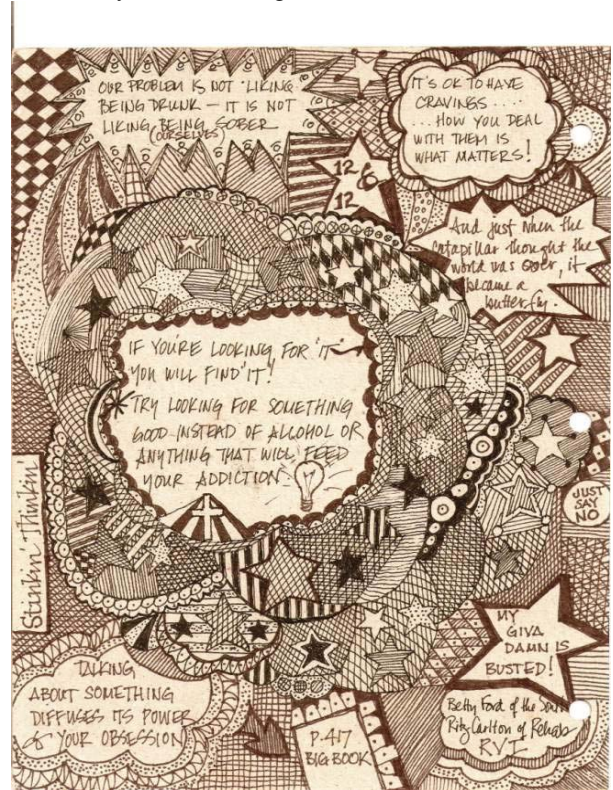 OUR PROBLEM IS NOT "LIKING
BEING DRUNK – IT IS NOT
LIKING BEING SOBER
(OURSELVES)
IT'S OK TO HAVE
CRAVINGS ....
...HOW YOU DEAL
WITH THEM IS
WHAT MATTERS!
12
&
12
And just when the
catapillar thought the
world was over, it
became a
butterfly.
IF YOU'RE LOOKING FOR "IT"
YOU WILL FIND "IT".
TRY LOOKING FOR SOMETHING
GOOD INSTEAD OF ALCOHOL OR
ANYTHING THAT WILL FEED
YOUR ADDICTION
JUST
SAY
NO
Stinkin' Thinkin'
MY
GIVA
DAMN IS
BUSTED!
TALKING
ABOUT SOMETHING
DIFFUSES ITS POWER
& YOUR OBSESSION
P. 417
BIG BOOK
Betty Ford of the
Ritz Carlton of Rehabs